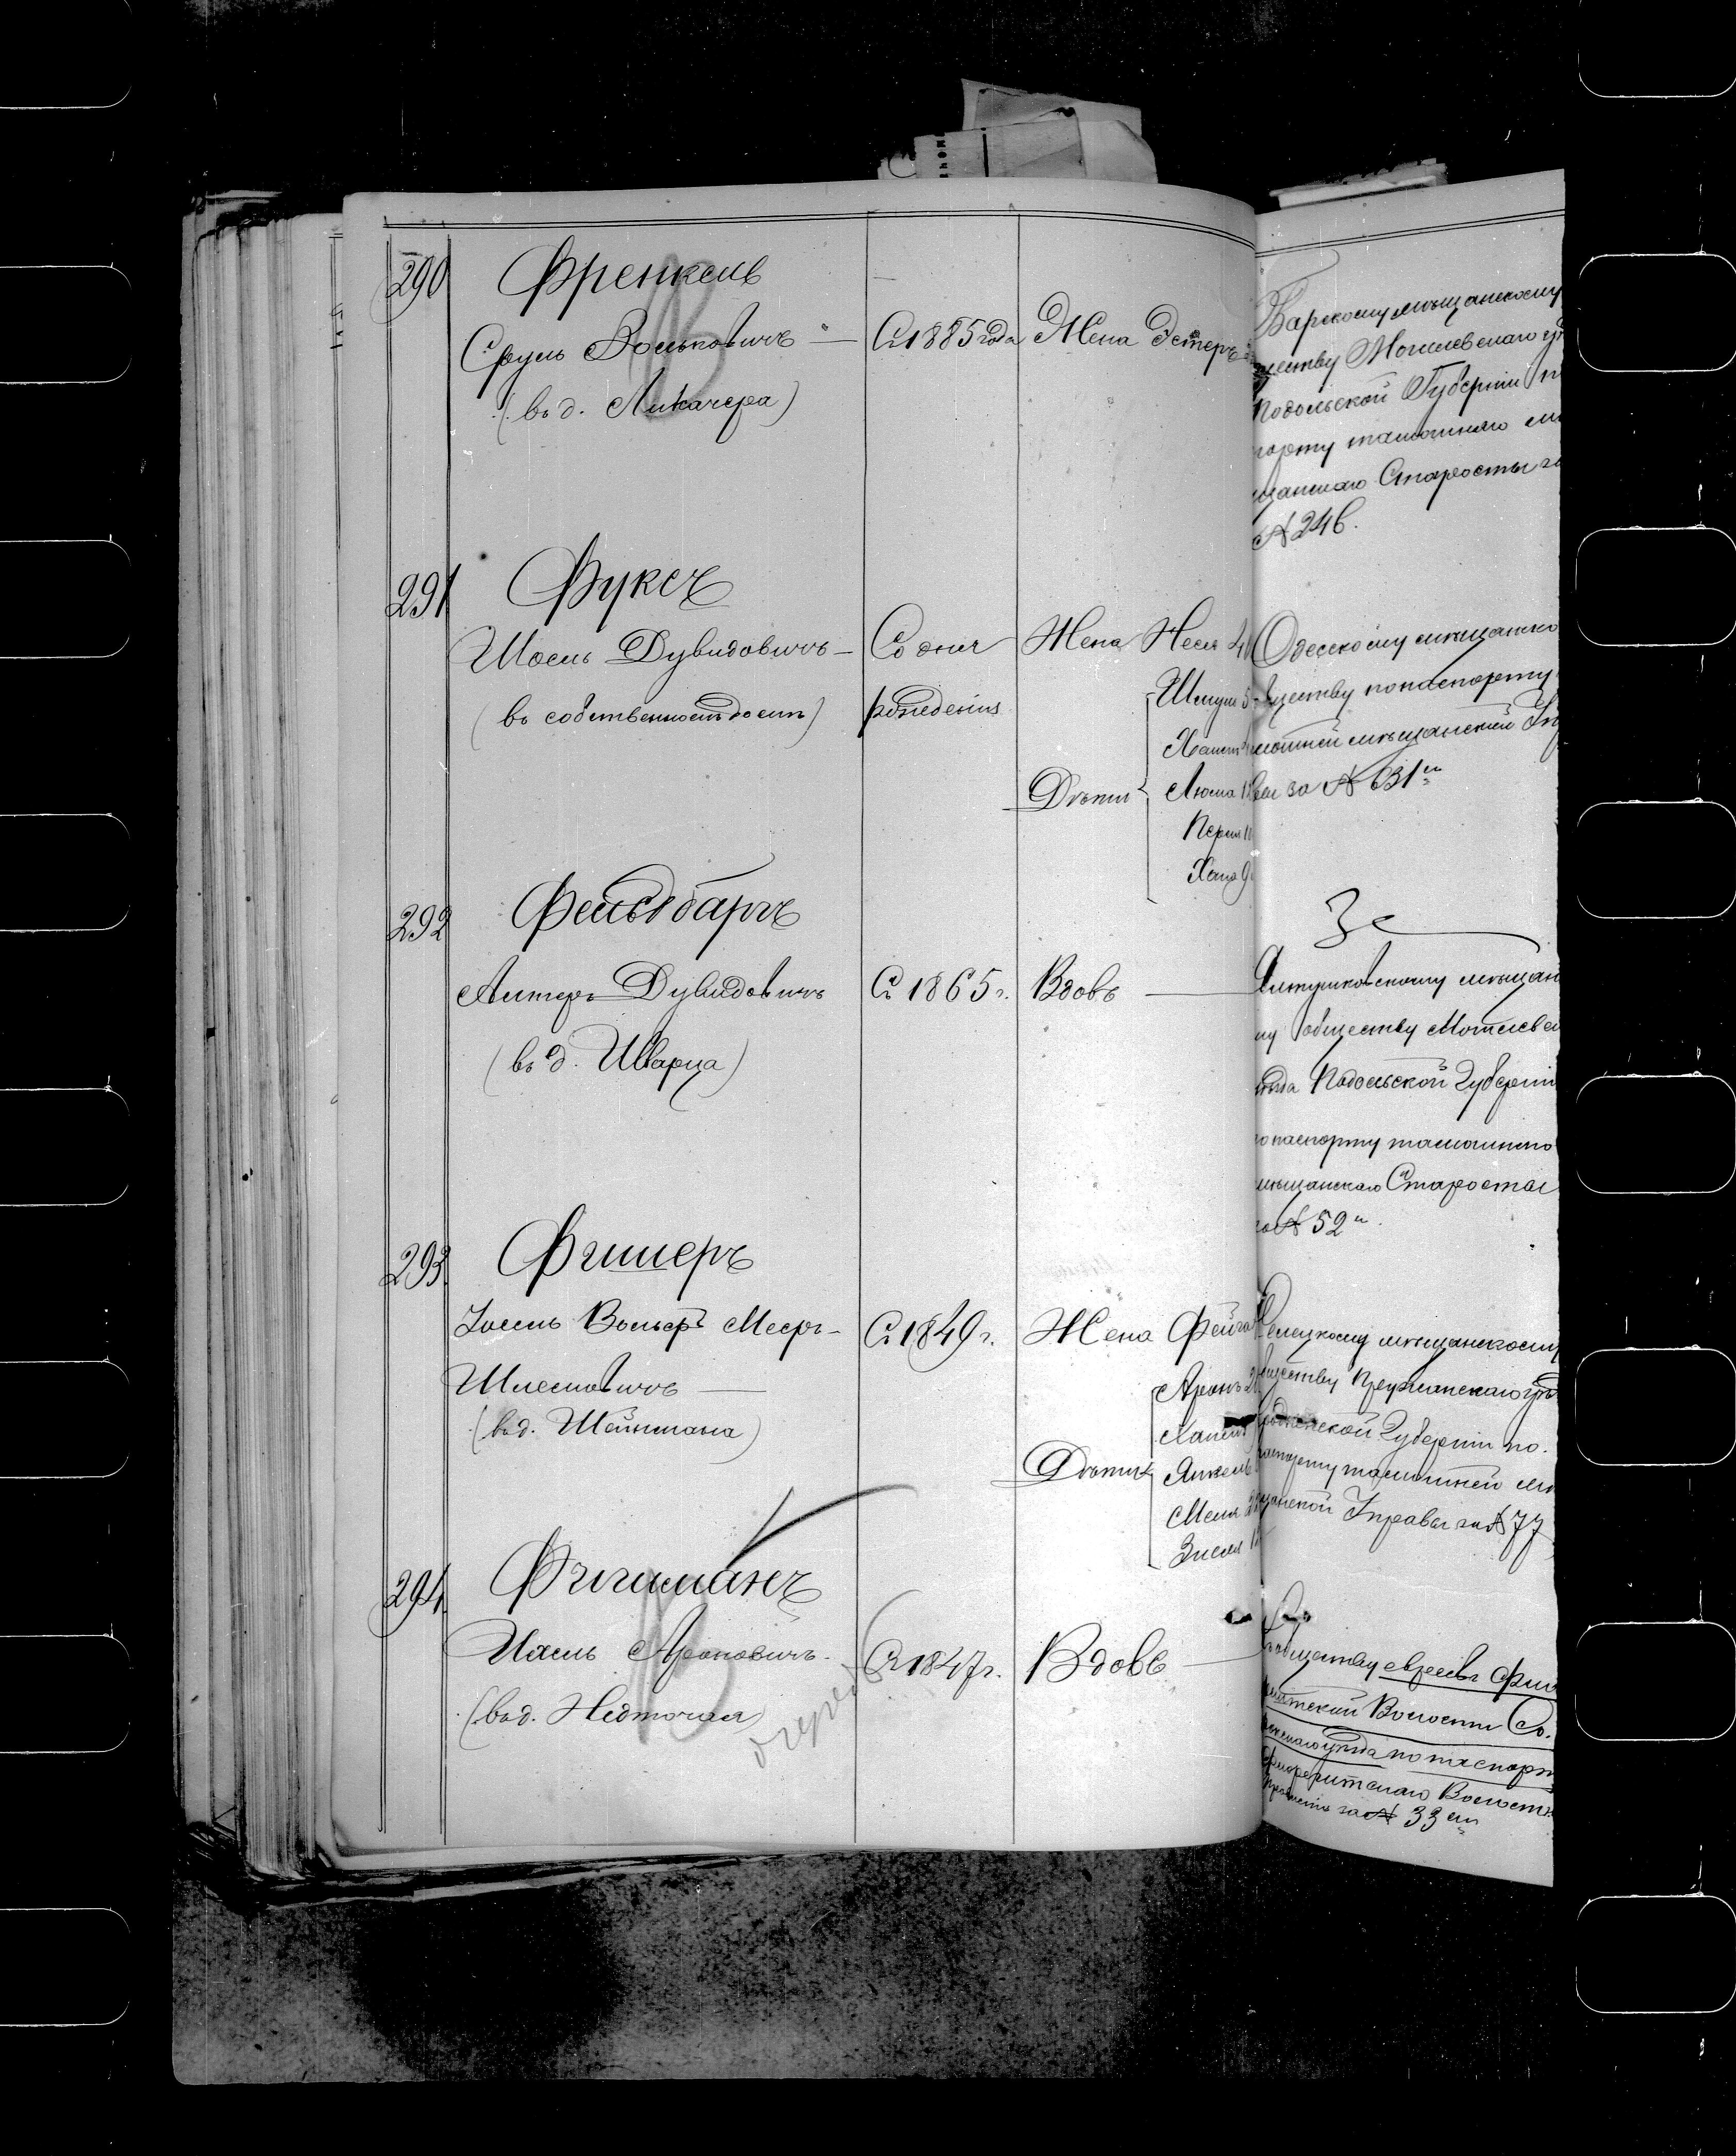 290
Френкель
Сруль Вольковичъ —
(въ д. Ликачера)
Съ 1885 года
Жена Эстеръ
Барскому мѣщанскому
ществу Могилевскаго у
Подольской Губерніи п
порту тамошняго мѣ
щанскаго Старосты за
№ 246.
291
Фуксъ
Шоель Дувидовичъ —
(въ собственном домѣ)
Со дня
рожденія
Жена Неся
Дѣти
Шмуль
Люма
Перля 11
Хана 9
Одесскому мѣщанско
ществу по паспорту
мѣщанской Уп
за № 631м
292
Фельдбаргъ
Алтеръ Дувидовичъ
(въ д. Шварца)
Съ 1865 г.
Вдовъ —
Ялтушковскому мѣщан
му обществу Могилевск
уѣзда Подольской Губерніи
по паспорту тамошняго
мѣщанскаго Старосты
за № 52м.
293
Фишеръ
Іосель Вольфъ Мееръ —
Шлемовичъ —
(въ д. Шейнмана)
Съ 1849 г.
Жена Фейга
Дѣти
Аронъ
Янкель
Зися
мѣщанскому
ществу Пружанскаго уѣз
Гродненской Губерніи по
паспорту тамошней мѣ
щанской Управы за № 77
294
Фигиманъ
Иясь Ароновичъ
(въ д. Недточая)
Съ 1847 г.
Вдовъ —
обществу евреевъ
Волости Со
уѣзда по паспорт
Волостн
за № 33м